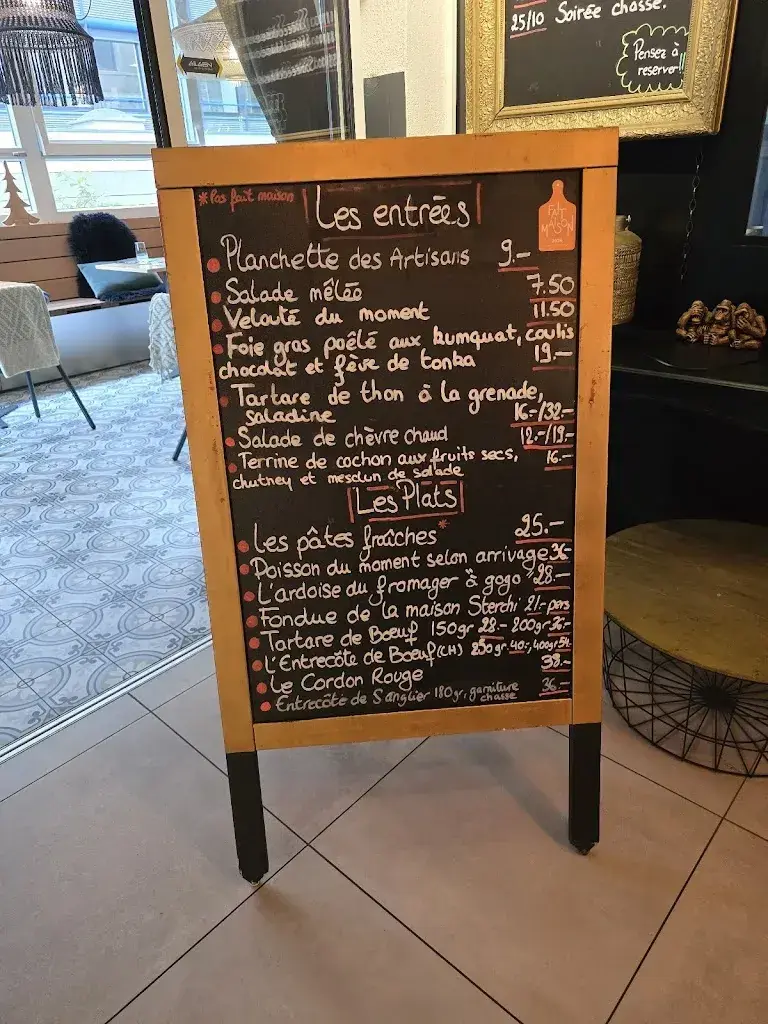 25/10 Soirée chasse.
Pensez à
reserver!!
*Pas fait maison
Les entrées
FAIT
MAISON
Planchette des Artisans 9.-
Salade mêlée 7.50
Velouté du moment 11.50
Foie gras poêlé aux kumquat, coulis
chocolat et fève de tonka 19.-
Tartare de thon à la grenade,
saladine 16.-/32.-
Salade de chèvre chaud 12.-/19.-
Terrine de cochon aux fruits secs, 16.-
chutney et mesclun de salade
Les Plats
Les pâtes fraîches* 25.-
Poisson du moment selon arrivage 36.-
L'ardoise du fromager à gogo 28.-
Fondue de la maison Sterchi 21.- pers
Tartare de Boeuf 150gr 28.- 200gr 36.-
L'Entrecôte de Boeuf (CH) 250gr 40.-, 400gr 54.-
Le Cordon Rouge 38.-
Entrecôte de Sanglier 180gr, garniture 36.-
chasse